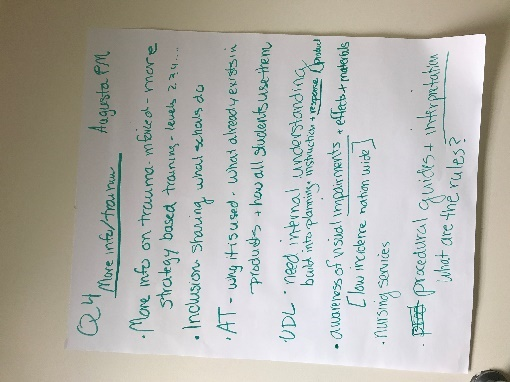 Q4
More info/training Augusta PM
• More info on trauma-informed - more
strategy based training - levels 2 3 4...
• Inclusion - sharing what schools do
• AT - why it is used - what already exists in
products + how all students use them
UDL • need internal understanding
build into planning + instruction + response / product
• awareness of visual impairments + effects + materials
[low incidence nation wide]
• nursing services
• procedural guides + interpretation
"what are the rules?"